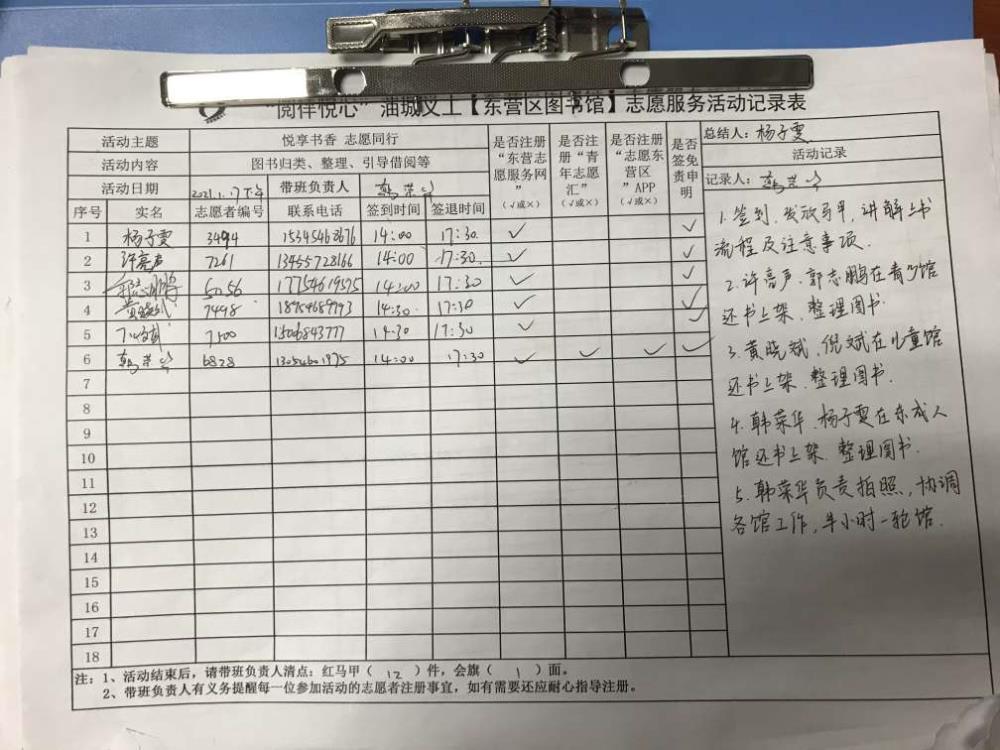 “阅伴悦心”油城义工【东营区图书馆】志愿服务活动记录表
活动主题 悦享书香 志愿同行 是否注册“东营志愿服务网”（√或×） 是否注册“青年志愿汇”（√或×） 是否注册“志愿东营区”APP（√或×） 是否签免责申明 总结人：杨子雯
活动内容 图书归类、整理、引导借阅等 活动记录
活动日期 2021.1.17下午 带班负责人 韩荣华 记录人：韩荣华
序号 实名 志愿者编号 联系电话 签到时间 签退时间
1 杨子雯 3494 15345462676 14:00 17:30 √ √
2 许亮声 7261 13455728166 14:00 17:30 √ √
3 郭志鹏 5056 17754619575 14:00 17:30 √ √
4 黄晓斌 7498 18954689793 14:30 17:30 √ √
5 7500 15006843777 14:30 17:30 √ √
6 韩荣华 6828 13054601975 14:00 17:30 √ √ √ √
7
8
9
10
11
12
13
14
15
16
17
18
1.签到、发放马甲，讲解上书
流程及注意事项．
2.许亮声、郭志鹏在青少馆
还书上架、整理图书
3.黄晓斌，倪斌在儿童馆
还书上架、整理图书．
4.韩荣华、杨子雯在东成人
馆还书上架、整理图书．
5.韩荣华负责拍照，协调
各馆工作，半小时一轮馆．
注：1、活动结束后，请带班负责人清点：红马甲（ 12 ）件，会旗（ 1 ）面。
2、带班负责人有义务提醒每一位参加活动的志愿者注册事宜，如有需要还应耐心指导注册。